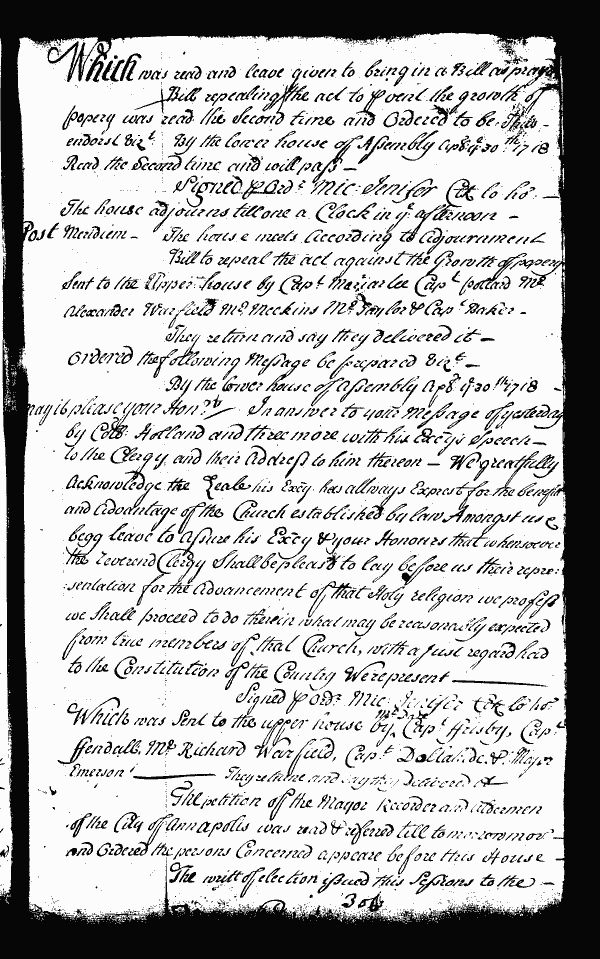 Which was read and leave given to bring in a Bill as prayd
Bill repealing the act to pvent the growth of
popery was read the Second time and Ordered to be thus -
endorst Vizt. By the lower house of Assembly Apr ye 30th 1718
Read the Second time and will pass -
Signed p Ordr Mic: Jenifer Clk lo ho: -
The house adjourns till one a Clock in ye afternoon -
Post Meridiem - The house meets According to Adjournment
Bill to repeal the act against the Growth of popery
Sent to the Upper house by Capt Mariarlee Capt pollard Mr
Alexander Warfield Mr Meekins Mr Taylor & Capt Maker -
They return and say they delivered it -
Ordered the following Message be prepared Vizt -
By the lower house of Assembly Apr ye 30th 1718 -
may it please your Honrs / In answer to your Message of yesterday
by Coll Holland and three more with his Excys Speech -
to the Clergy and their Address to him thereon - We greatfully
Acknowledge the Zeale his Excy has allways Exprest for the benefit
and Advantage of the Church established by law Amongst us &
begg leave to Assure his Excy & your Honours that whensoever
the Reverend Clergy Shall be pleasd to lay before us their repre-
sentation for the Advancement of that Holy religion we profess
we Shall proceed to do therein what may be reasonably expected
from true members of that Church, with a just regard had
to the Constitution of the Country We represent
Signed p Ordr Mic: Jenifer Clk lo ho
Which was Sent to the upper house by Capt ffrisby, Capt
ffendall, Mr Richard Warfield, Capt Dollahide & Major
Emerson They returne and say they delivered it
The petition of the Mayor Recorder and Aldermen
of the City of Annapolis was read & referred till to morrow mor -
and Ordered the persons Concerned appeare before this House -
The writt of election issued this Sessions to the -